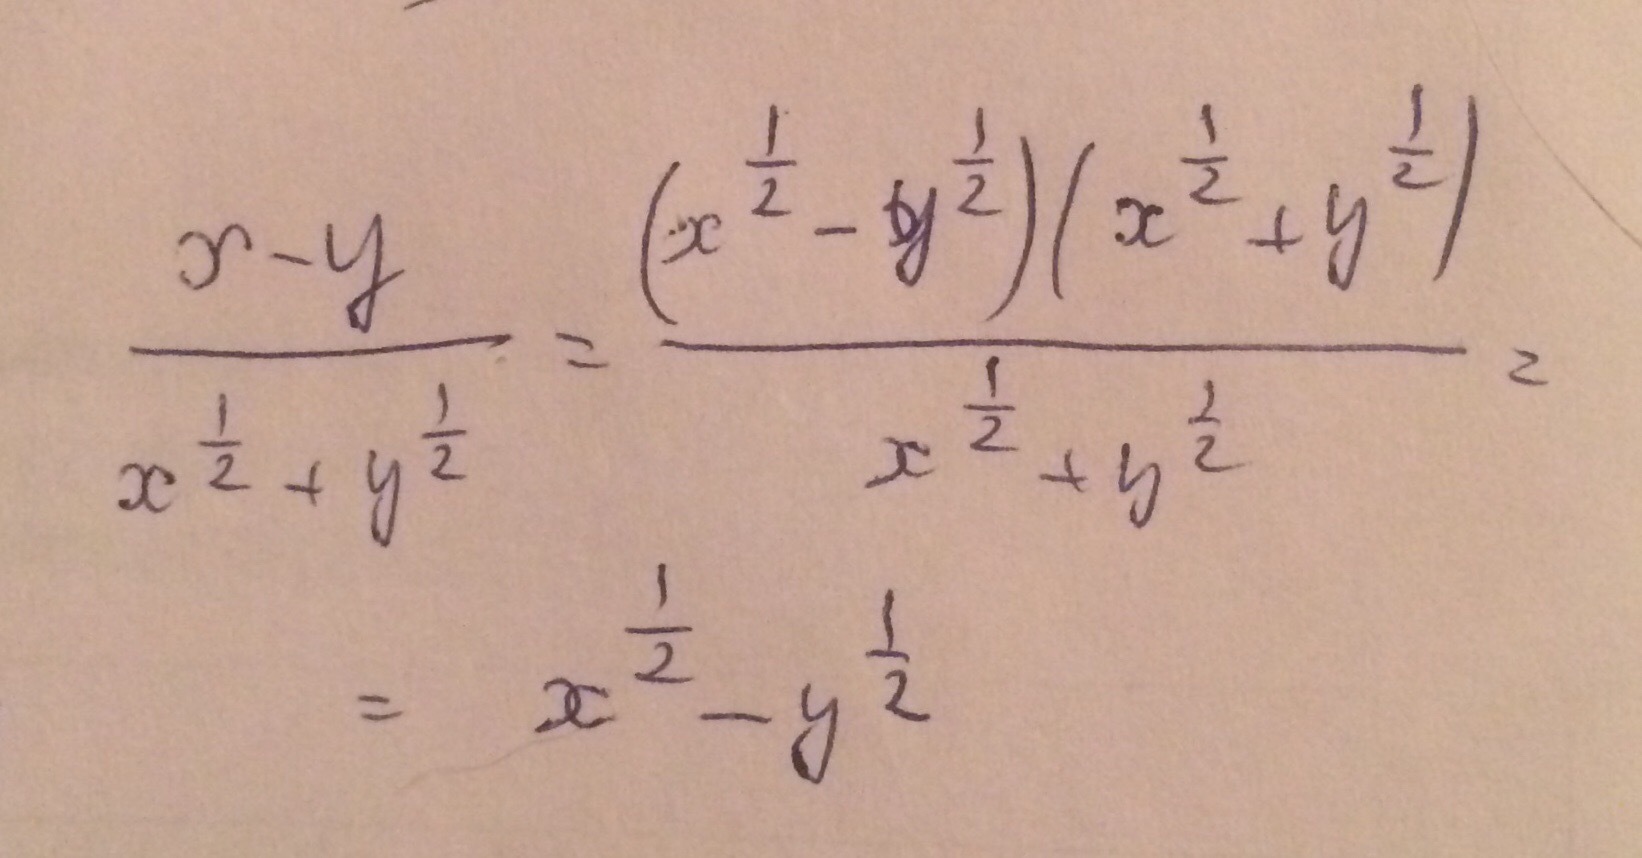 \frac{x-y}{x^{\frac{1}{2}}+y^{\frac{1}{2}}} = \frac{(x^{\frac{1}{2}}-y^{\frac{1}{2}})(x^{\frac{1}{2}}+y^{\frac{1}{2}})}{x^{\frac{1}{2}}+y^{\frac{1}{2}}} =
= x^{\frac{1}{2}}-y^{\frac{1}{2}}